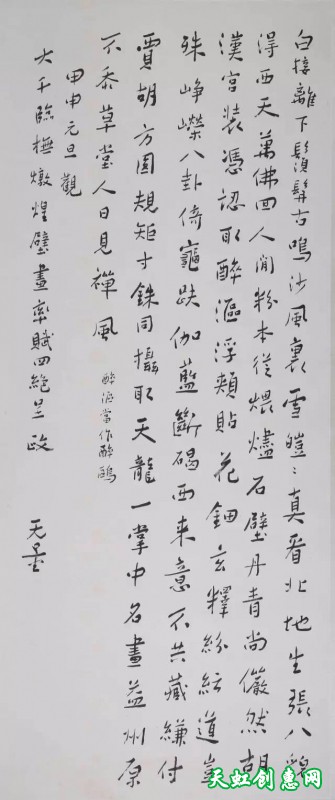 白接離下鬚髯古鳴沙風裏雪皚〻真看北地生張八貌
得西天萬佛回人間粉本從煨燼石壁丹青尚儼然胡
漢宮裝憑認取醉漚浮頰貼花鈿玄釋紛紜道豈
殊崢嶸八卦倚龜趺伽藍斷碣西來意不共藏縑付
賈胡方圓規矩寸銖同攝取天龍一掌中名畫益州原
不忝草堂人日見禪風
醉漚當作醉鷗
甲申元旦觀
大千臨橅燉煌壁畫率賦四絕呈政
无量
天虹创惠网